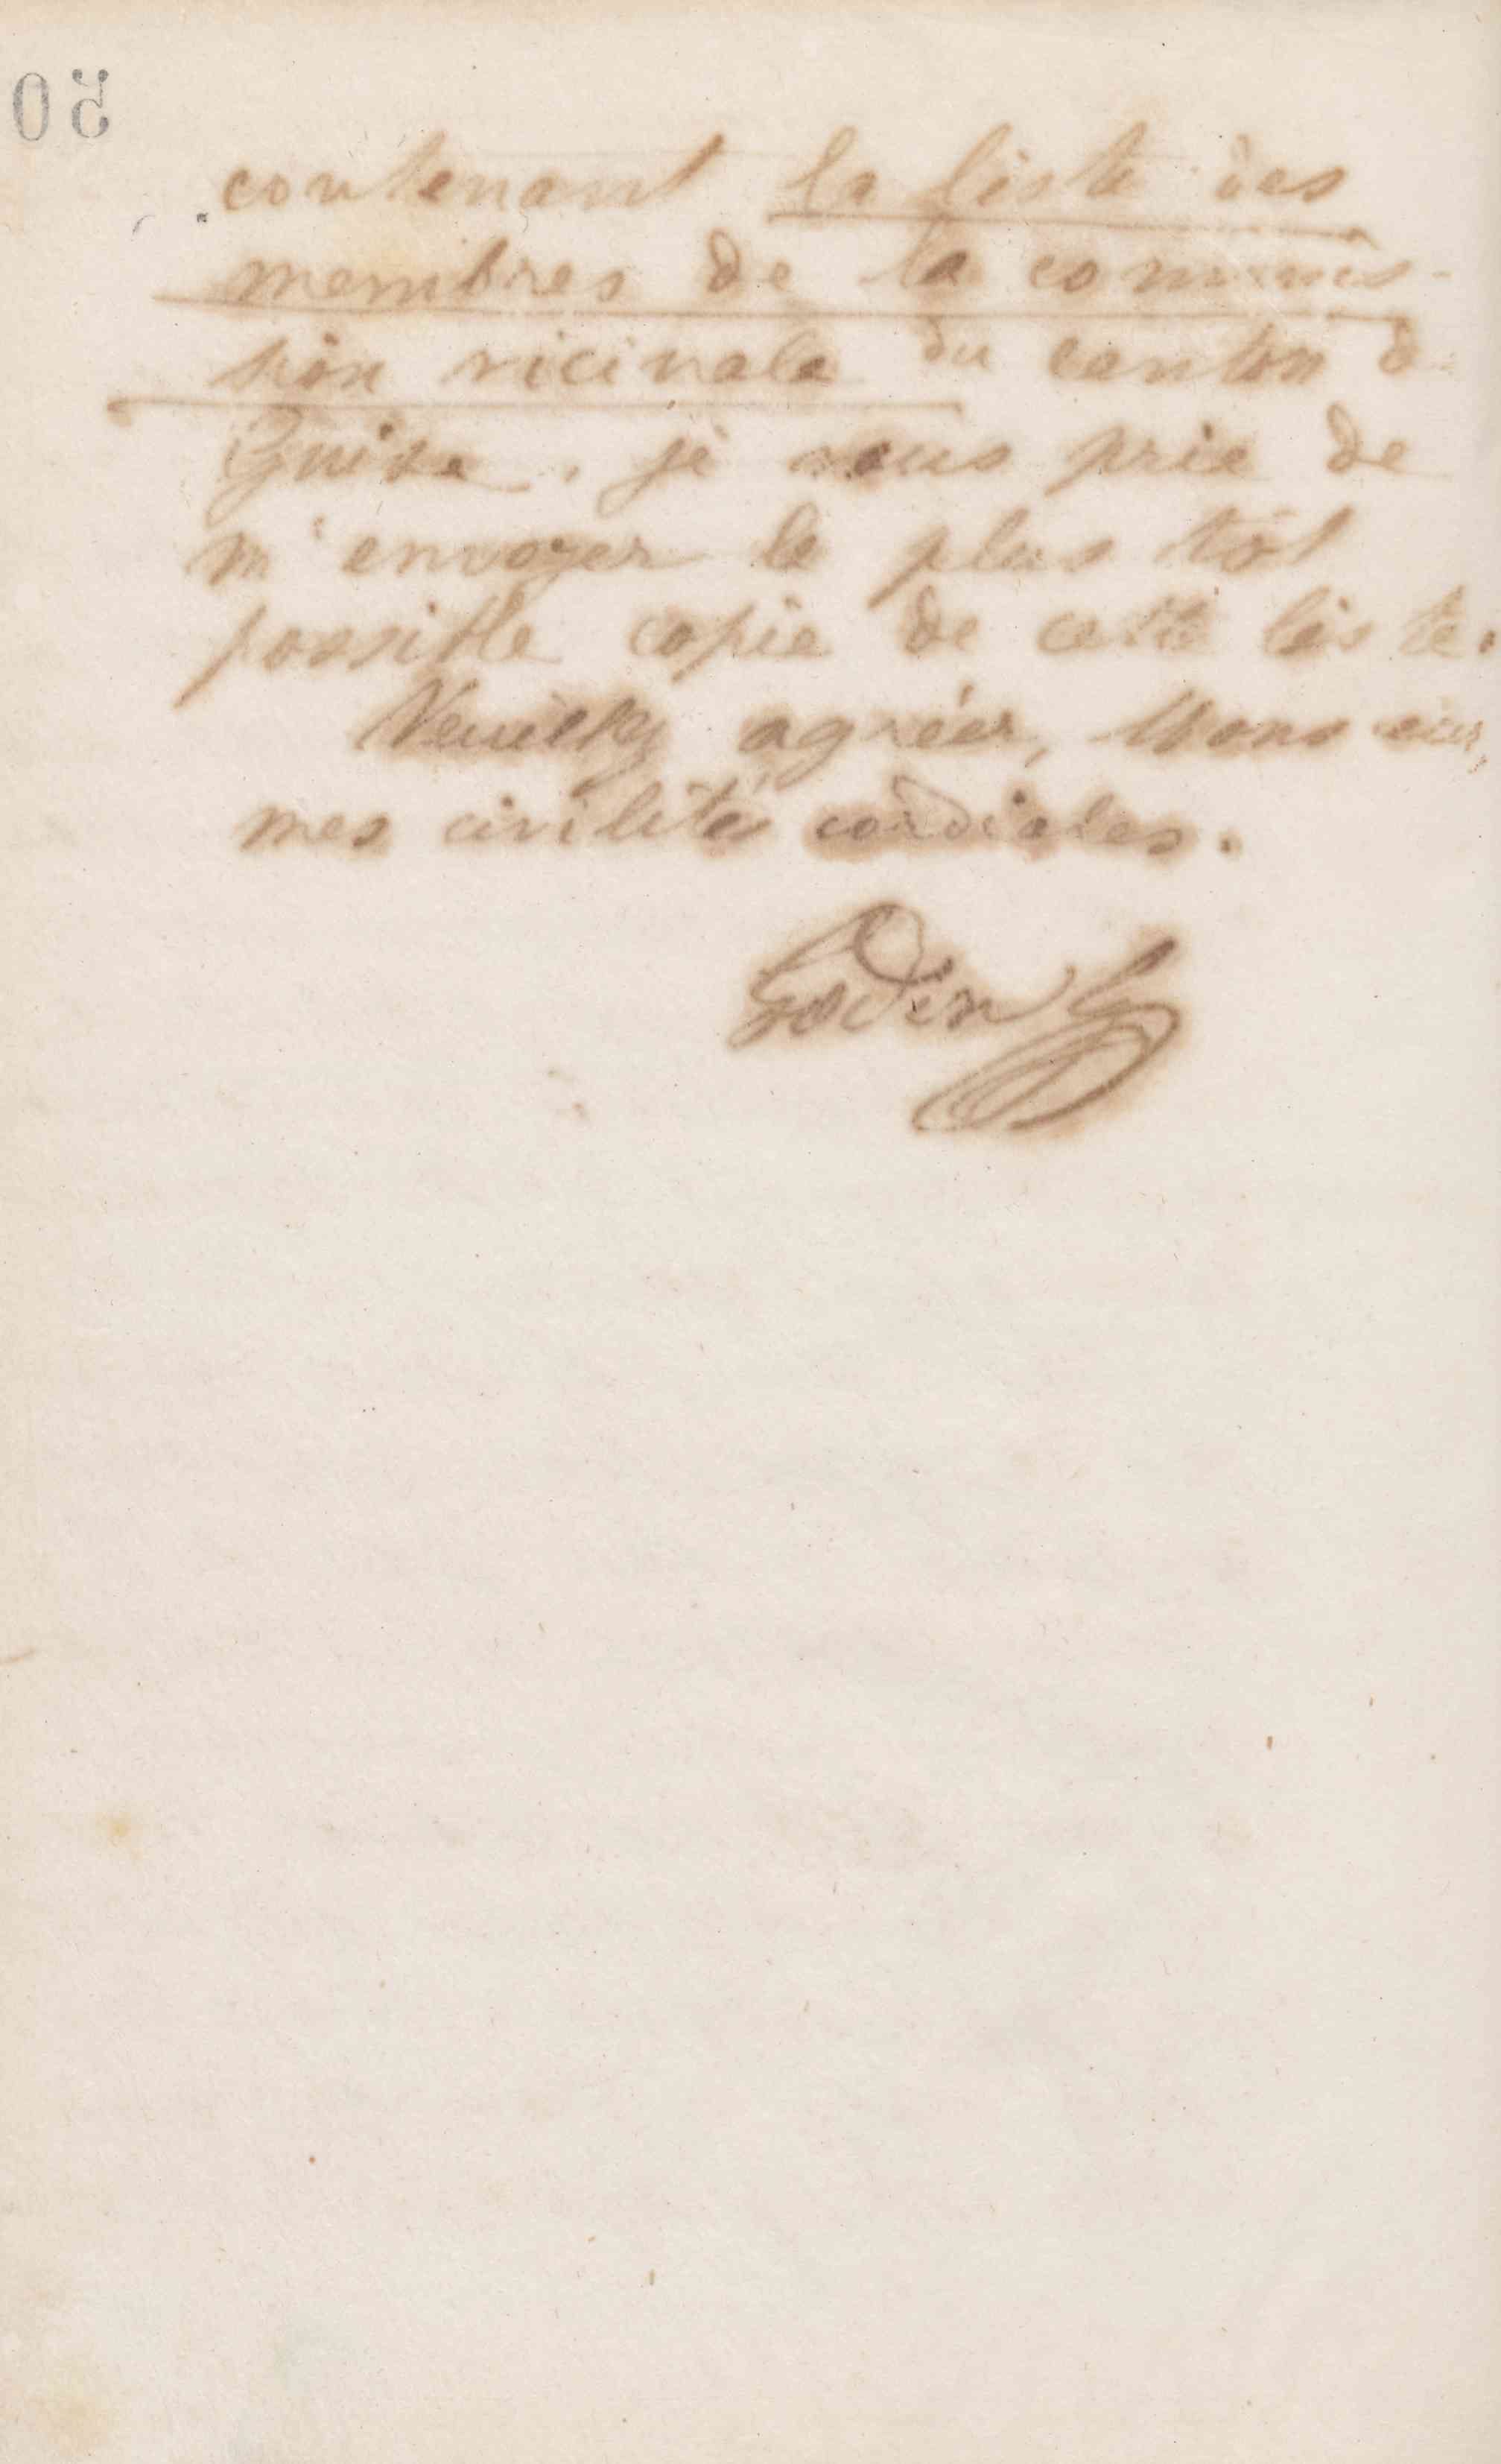 50
contenant la liste des
membres de la commis-
sion vicinale du canton d
Guise, je vous prie de
m'envoyer le plus tôt
possible copie de cette liste.
Veuillez agréer, Monsieur,
mes civilités cordiales.
Godin